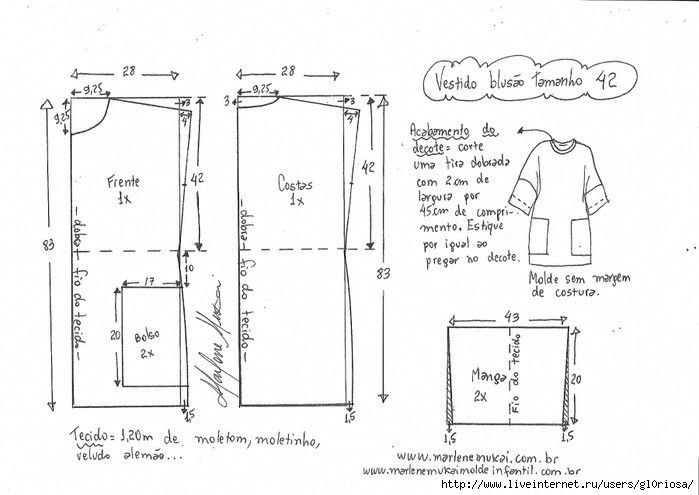 Vestido blusão Tamanho 42
28
9,25
9,25
3
4
Frente
1x
42
83
-dobra- fio do tecido-
10
17
20
Bolso
2x
1,5
Marlene Mukai
28
9,25
3
3
4
Costas
1x
42
83
-dobra- fio do tecido-
1,5
Acabamento do
decote= corte
uma tira dobrada
com 2cm de
largura por
45cm de compri-
mento. Estique
por igual ao
pregar no decote.
Molde sem margem
de costura.
43
Manga
2x
Fio do tecido
20
1,5
1,5
Tecido= 1,20m de moletom, moletinho,
veludo alemão...
www.marlenemukai.com.br
www.marlenemukaimoldeinfantil.com.br
http://www.liveinternet.ru/users/gl0riosa/